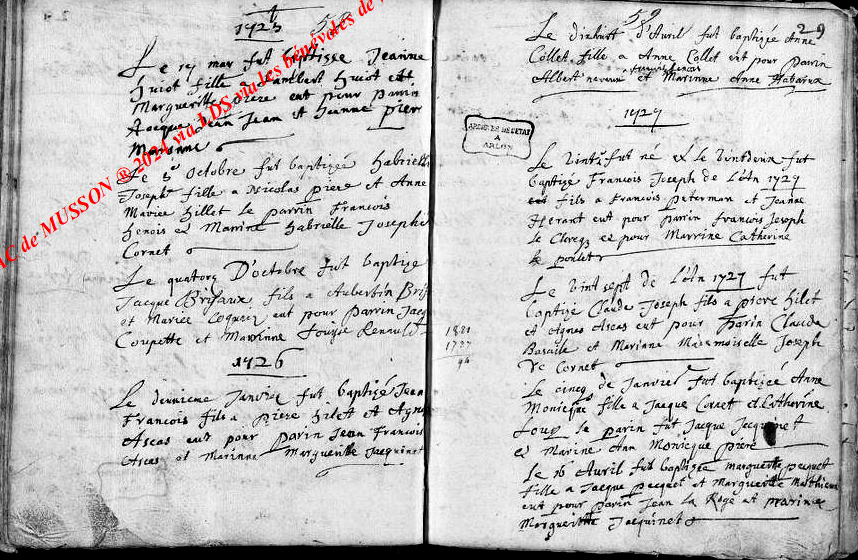 1725
58
Le 17 may fut baptisse Jeanne
huiot fille a Lambert huiot et
Margueritte piere eut pour parin
Jacque Jean Jean et Jeanne pier
Marinne
Le 5e octobre fut baptizée Gabrielle
Joseph fille a Nicolas piere et Anne
Mariee hillet le parrin François
henois et Marine Gabrielle Josephe
Cornet
Le quatorz D'octobre fut baptize
Jacque Brifaux fils a Aubertin Brif
et Mariee Coquret eut pour Parrin Jacq
Coupette et Marinne Louyse Renault
1726
Le deuxieme Janvier fut baptizé Jean
François fils a piere hilet et Agn
Ascas eut pour parin Jean François
Ascas et Marinne Margueritte Jacquinet
AC de MUSSON ® 2024 via LDS via les bénévoles de
59
29
Le dixhuit d'Avril fut baptizée Anne
Collet fille a Anne Collet eut pour Parin
Albert neveux et Marinne Anne Habarux
1727
ARCHIVES DE L'ETAT
A
ARLON
Le vint fut né et Le vintdeux fut
baptizé François Joseph de L'én 1727
fils a François Peterman et Jeanne
Herant eut pour parin françois Joseph
le Clereq et pour Marrine Catherine
poulet
Le vint sept de L'én 1727 fut
baptizé Claude Joseph fils a piere hilet
et Agnes Ascas eut pour Parin Claude
Basaile et Marianne Mademoiselle Joseph
De Cornet
1821
1727
94
Le cincq de Janvier fut baptizée Anne
Monicque fille a Jacque Cornet et Catherine
Loup le parin fut Jacque Jacquinet
et Marine Ann Monicque piere
Le 16 Avril fut baptizée margueritte pecquet
fille a Jacque pecquet et Margueritte Mathieux
eut pour parin Jean la Roge et marine
Margueritte Jacquinet